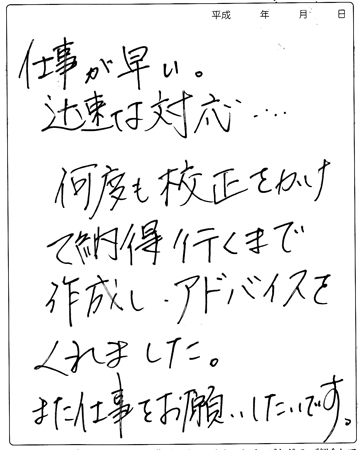 平成　年　月　日
仕事が早い。
迅速は対応‥‥
何度も校正をかけ
て納得行くまで
作成し、アドバイスを
くれました。
また仕事をお願いしたいです。